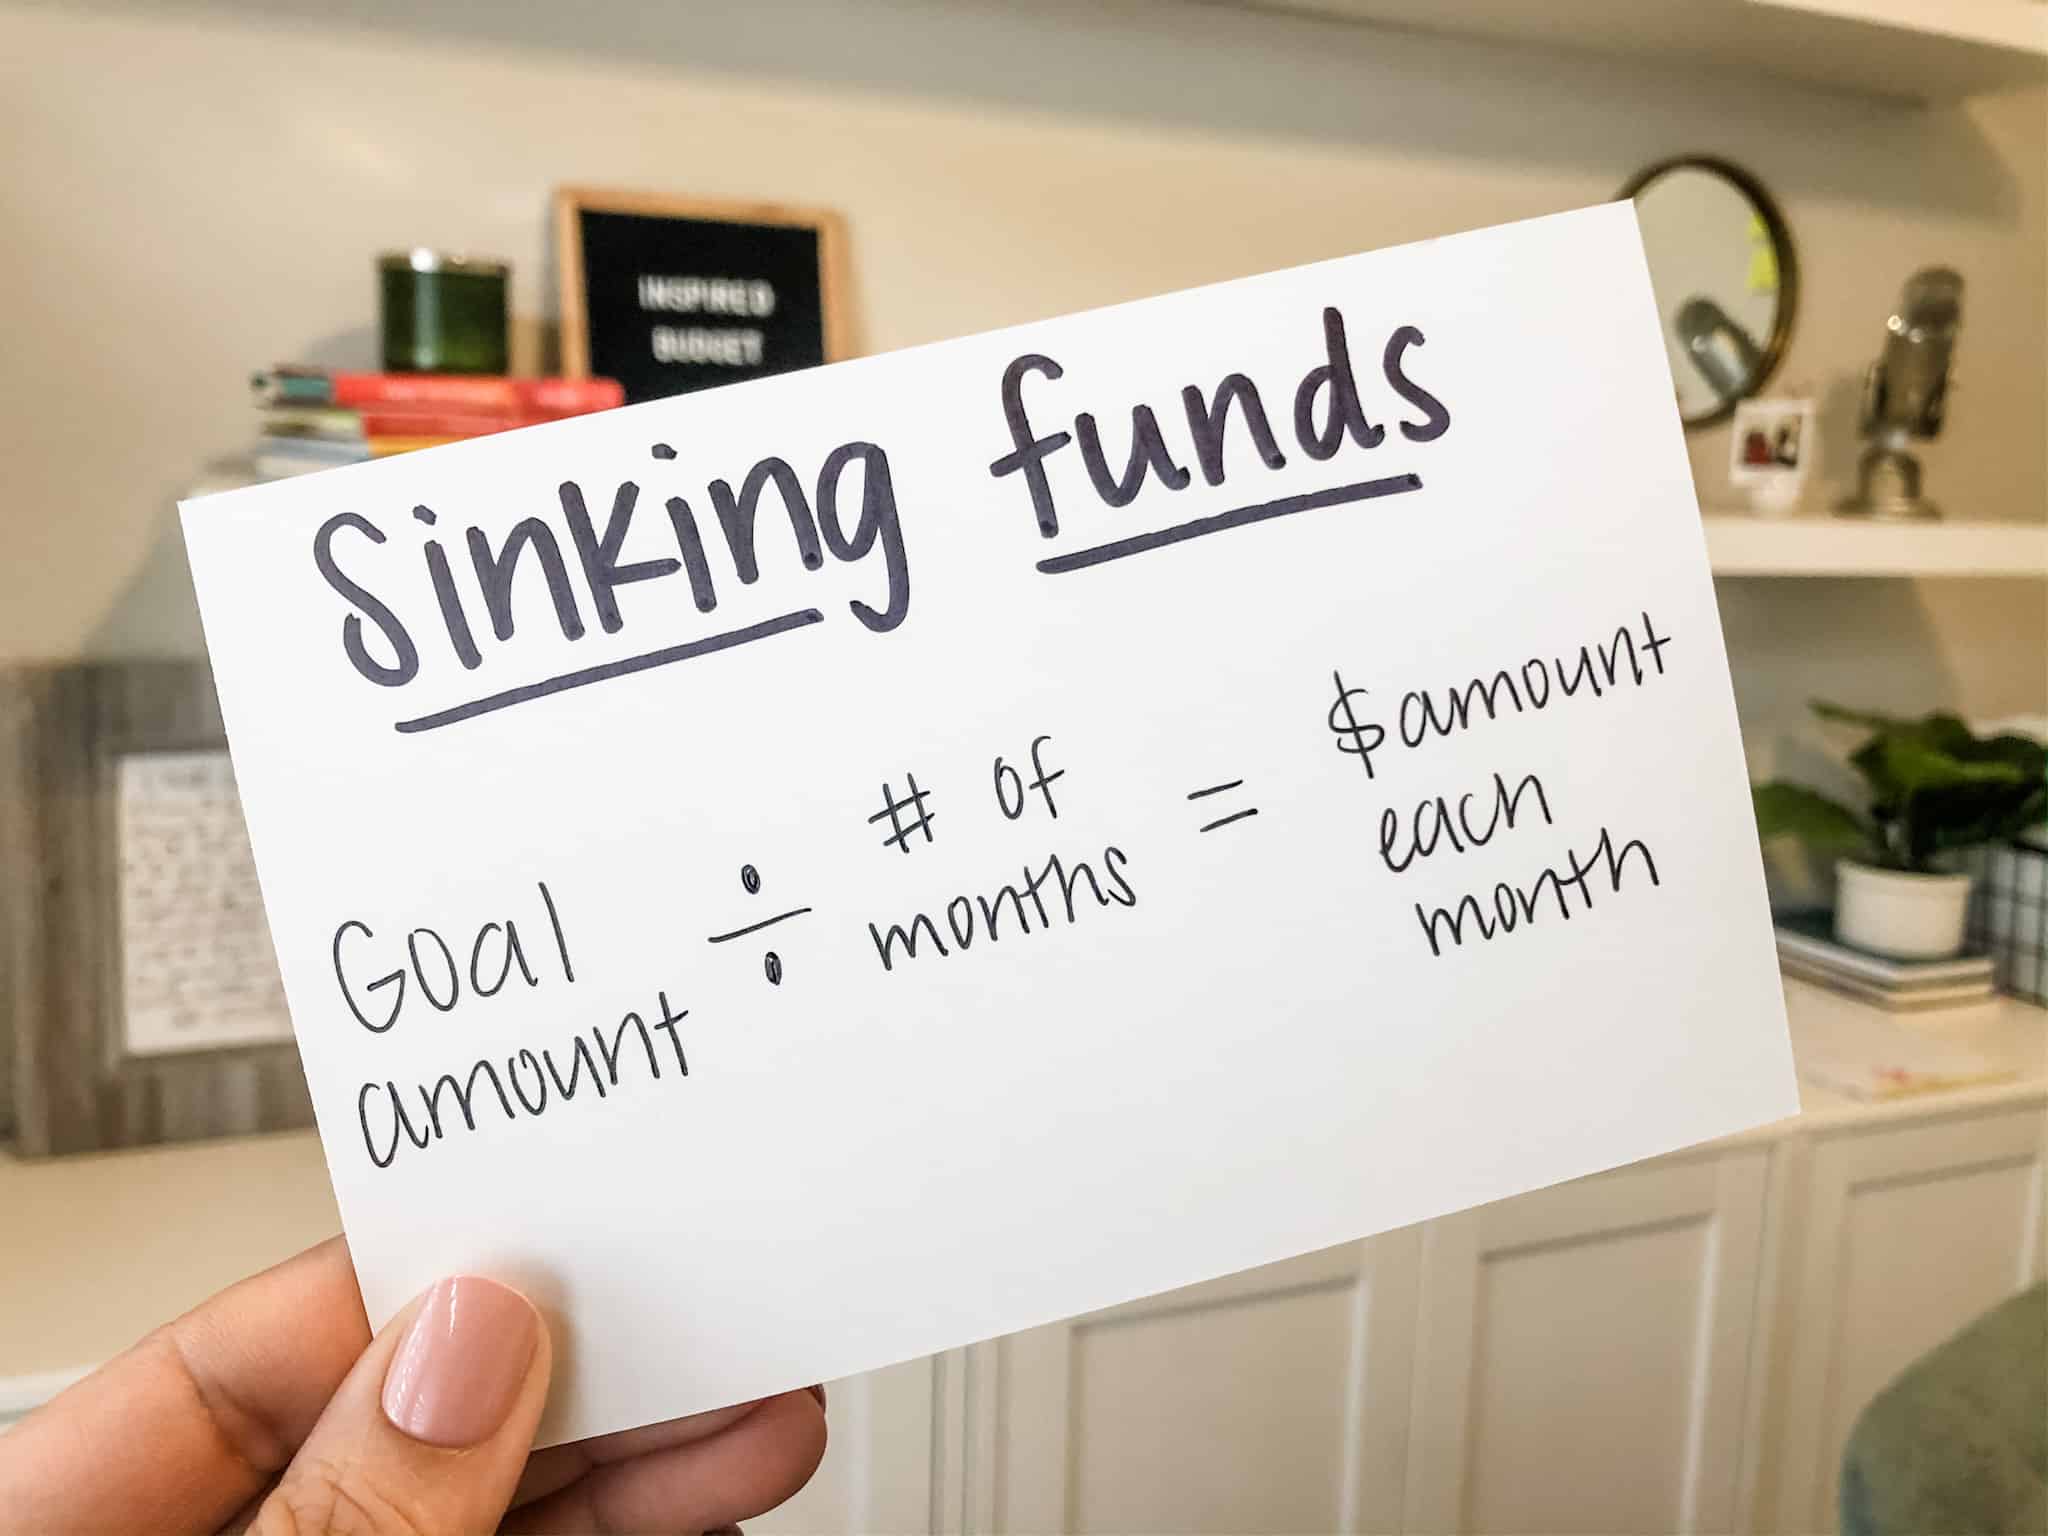 INSPIRED
BUDGET
Sinking funds
Goal amount ÷ # of months = $ amount each month